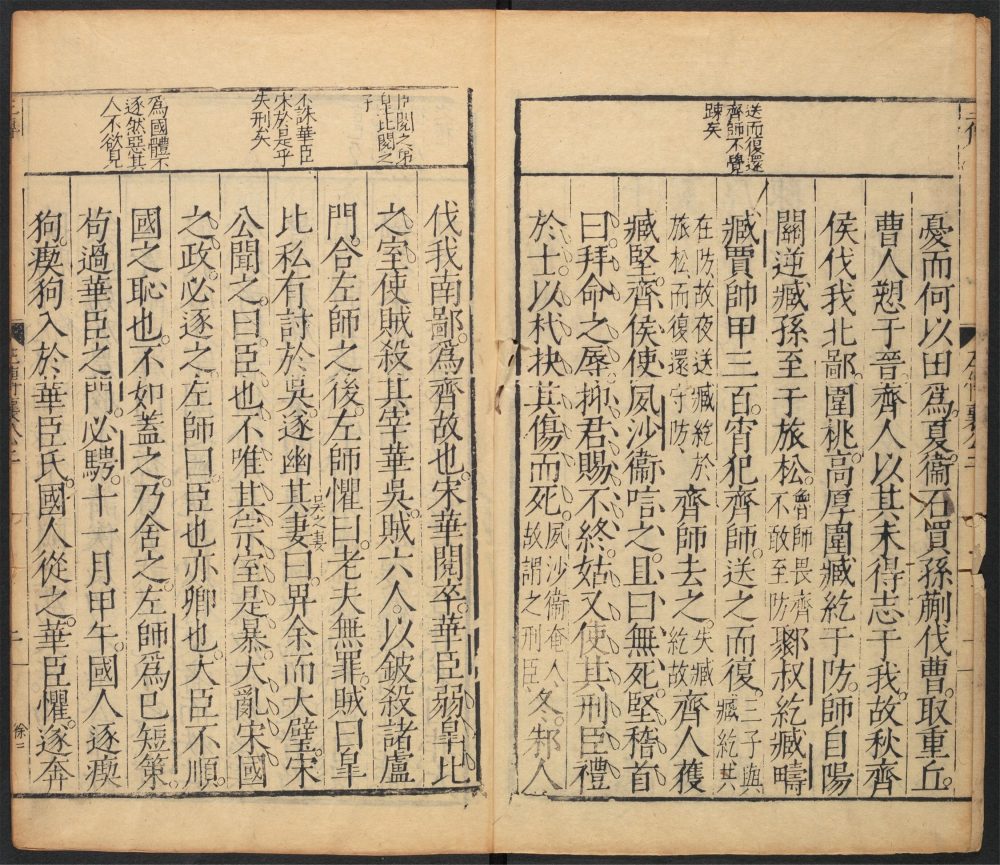 送而復還
齊師不覺
踈矣
憂而何以田爲夏衞石買孫蒯伐曹取重丘
曹人愬于晉齊人以其未得志于我故秋齊
侯伐我北鄙圍桃高厚圍臧紇于防師自陽
關逆臧孫至于旅松魯師畏齊不敢至防郰叔紇臧疇
臧賈帥甲三百宵犯齊師送之而復三子與臧紇共
在防故夜送臧紇於旅松而復還守防齊師去之失臧紇故齊人獲
臧堅齊侯使夙沙衞唁之且曰無死堅稽首
曰拜命之辱抑君賜不終姑又使其刑臣禮
於士以杙抉其傷而死夙沙衞奄人故謂之刑臣冬邾人
臣閱之弟
皐比閱之
子
不誅華臣
宋於是乎
失刑矣
爲國體不
逐然惡其
人不欲見
伐我南鄙爲齊故也宋華閱卒華臣弱皐比
之室使賊殺其宰華吳賊六人以鈹殺諸盧
門合左師之後左師懼曰老夫無罪賊曰皐
比私有討於吳遂幽其妻吳之妻曰畀余而大璧宋
公聞之曰臣也不唯其宗室是暴大亂宋國
之政必逐之左師曰臣也亦卿也大臣不順
國之恥也不如蓋之乃舍之左師爲已短策
苟過華臣之門必騁十一月甲午國人逐瘈
狗瘈狗入於華臣氏國人從之華臣懼遂奔